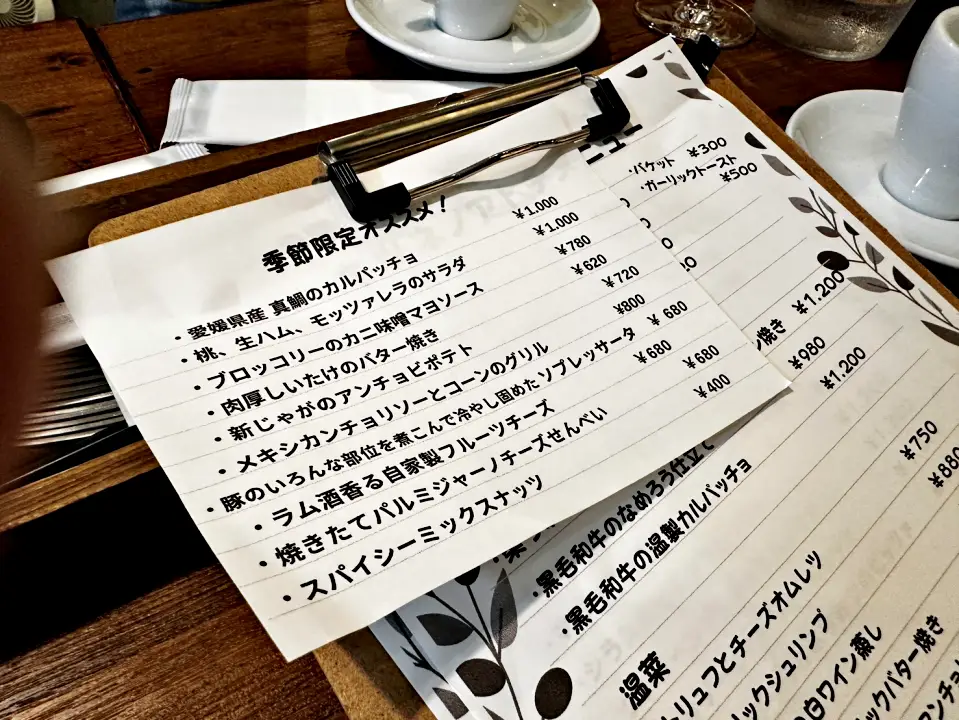 季節限定オススメ!
・愛媛県産 真鯛のカルパッチョ ¥1,000
・桃、生ハム、モッツァレラのサラダ ¥1,000
・ブロッコリーのカニ味噌マヨソース ¥780
・肉厚しいたけのバター焼き ¥620
・新じゃがのアンチョビポテト ¥720
・メキシカンチョリソーとコーンのグリル ¥800
・豚のいろんな部位を煮こんで冷やし固めたソプレッサータ ¥680
・ラム酒香る自家製フルーツチーズ ¥680
・焼きたてパルミジャーノチーズせんべい ¥680
・スパイシーミックスナッツ ¥400
ニュー
・バケット ¥300
・ガーリックトースト ¥500
¥1,200
焼き ¥980
¥1,200
・黒毛和牛のなめろう仕立て ¥750
・黒毛和牛の温製カルパッチョ ¥880
温菜
トリュフとチーズオムレツ
ックシュリンプ
白ワイン蒸し
ックバター焼き
アンチョ